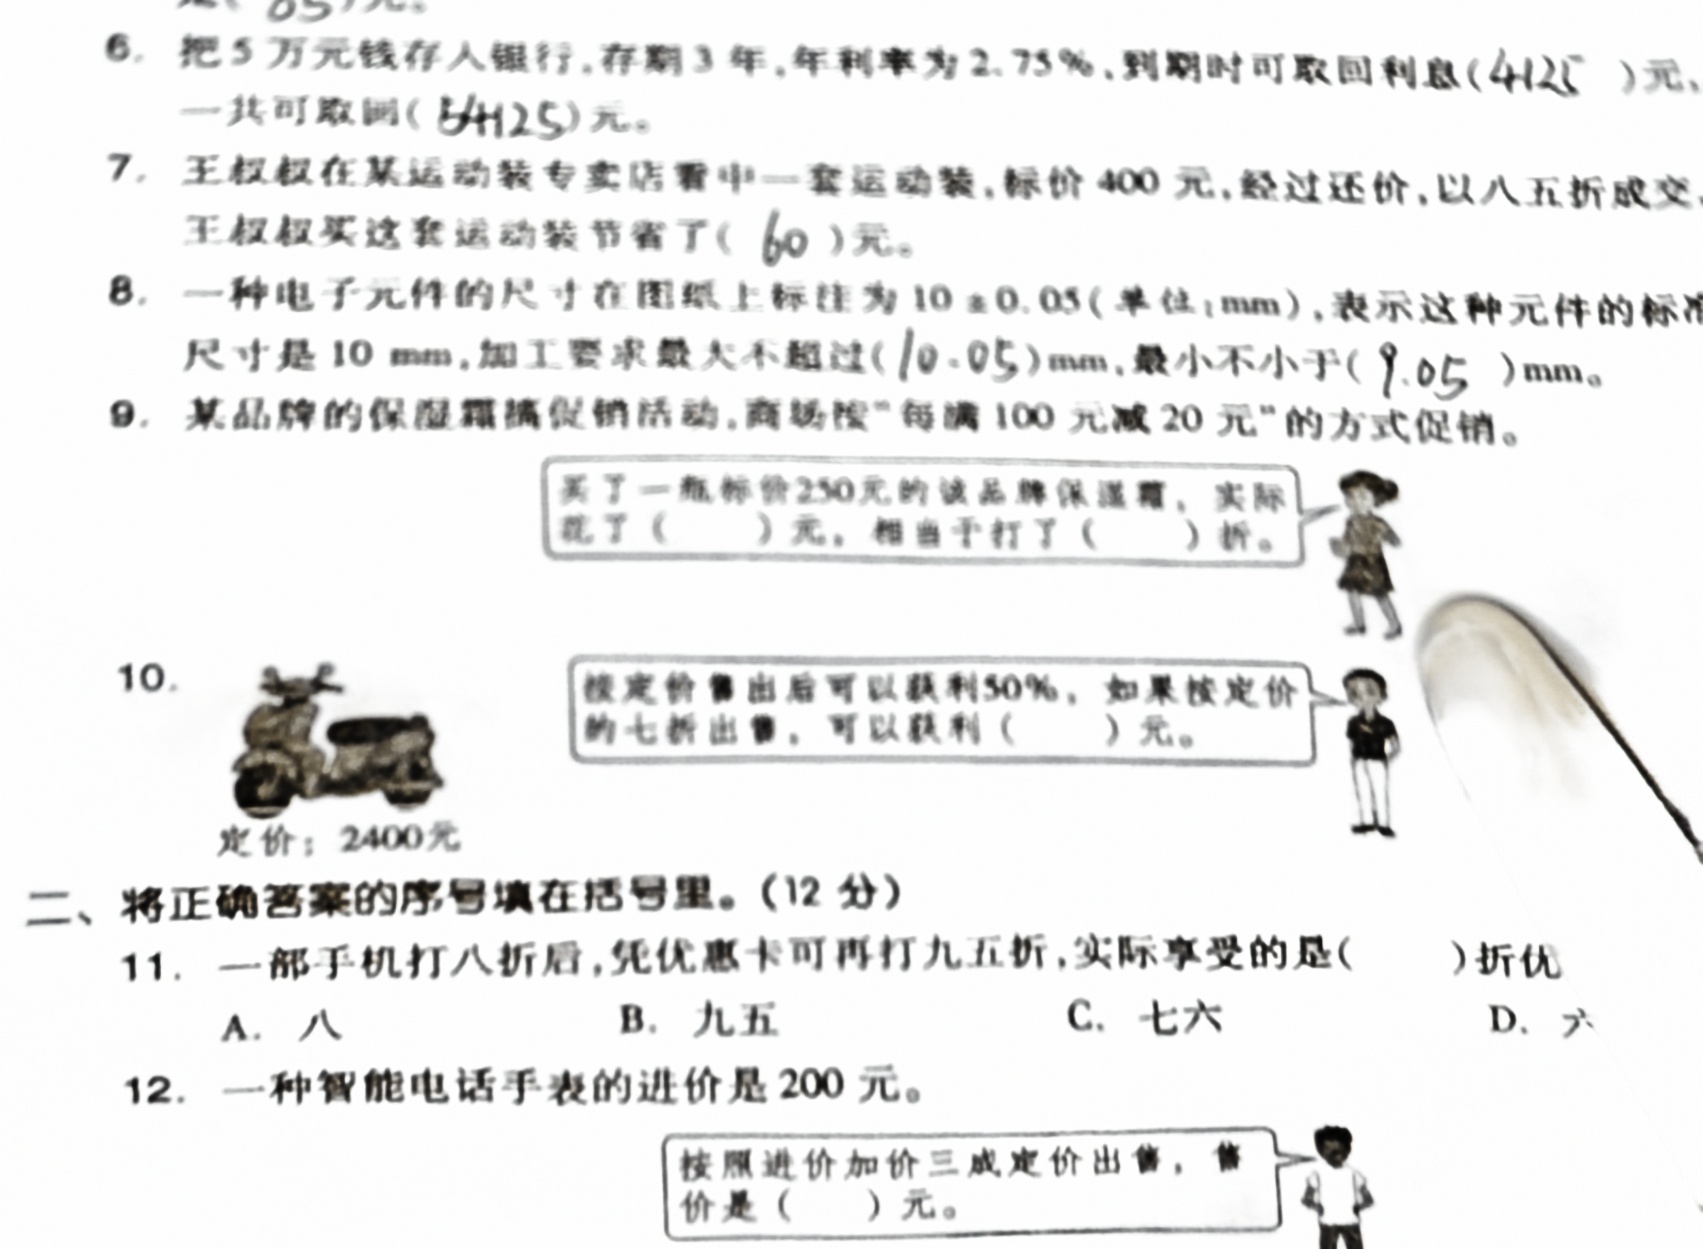 6. 把5万元钱存入银行,存期3年,年利率为2.75%,到期时可取回利息(4125)元,
一共可取回(54125)元。
7. 王叔叔在某运动装专卖店看中一套运动装,标价400元,经过还价,以八五折成交,
王叔叔买这套运动装节省了(60)元。
8. 一种电子元件的尺寸在图纸上标注为10±0.05(单位:mm),表示这种元件的标准
尺寸是10 mm,加工要求最大不超过(10.05)mm,最小不小于(9.05)mm。
9. 某品牌的保湿霜搞促销活动,商场按“每满100元减20元”的方式促销。
买了一瓶标价250元的该品牌保湿霜,实际
花了( )元,相当于打了( )折。
10.
按定价售出后可以获利50%,如果按定价
的七折出售,可以获利( )元。
定价:2400元
二、将正确答案的序号填在括号里。(12分)
11. 一部手机打八折后,凭优惠卡可再打九五折,实际享受的是( )折优
A. 八 B. 九五 C. 七六 D. 六
12. 一种智能电话手表的进价是200元。
按照进价加价三成定价出售,售
价是( )元。